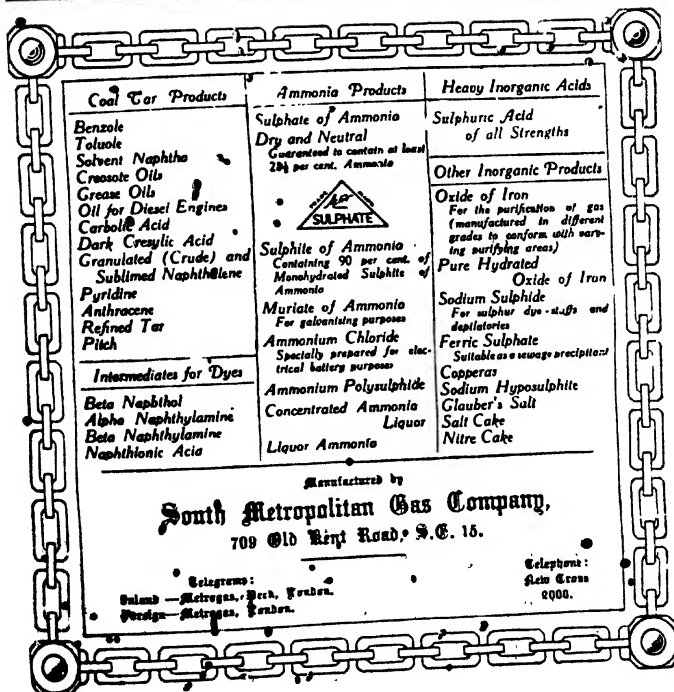 Coal Tar Products
Benzole
Toluole
Solvent Naphtha
Creosote Oils
Grease Oils
Oil for Diesel Engines
Carbolic Acid
Dark Cresylic Acid
Granulated (Crude) and
Sublimed Naphthalene
Pyridine
Anthracene
Refined Tar
Pitch
Intermediates for Dyes
Beta Naphthol
Alpha Naphthylamine
Beta Naphthylamine
Naphthionic Acid
Ammonia Products
Sulphate of Ammonia
Dry and Neutral
Guaranteed to contain at least
25¼ per cent. Ammonia
TRADE MARK
SULPHATE
Sulphite of Ammonia
Containing 90 per cent. of
Monohydrated Sulphite of
Ammonia
Muriate of Ammonia
For galvanising purposes
Ammonium Chloride
Specially prepared for elec-
trical battery purposes
Ammonium Polysulphide
Concentrated Ammonia
Liquor
Liquor Ammonia
Heavy Inorganic Acids
Sulphuric Acid
of all Strengths
Other Inorganic Products
Oxide of Iron
For the purification of gas
(manufactured in different
grades to conform with vary-
ing purifying areas)
Pure Hydrated
Oxide of Iron
Sodium Sulphide
For sulphur dye-stuffs and
depilatories
Ferric Sulphate
Suitable as a sewage precipitant
Copperas
Sodium Hyposulphite
Glauber's Salt
Salt Cake
Nitre Cake
Manufactured by
South Metropolitan Gas Company,
709 Old Kent Road, S.E. 15.
Telegrams:
Inland—Metrogas, Peck, London.
Foreign—Metrogas, London.
Telephone:
New Cross
2000.